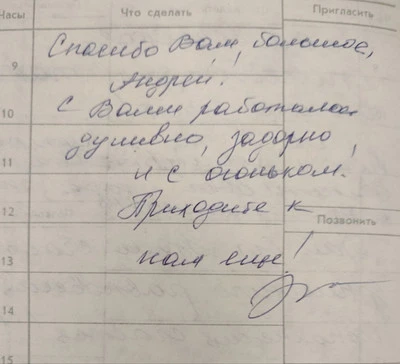 Часы Что сделать Пригласить
9 Спасибо Вам, большое,
Андрей!
10 С Вами работалось
душевно, задорно,
11 и с огоньком.
12 Приходите к
Позвонить
13 нам еще!
14
15